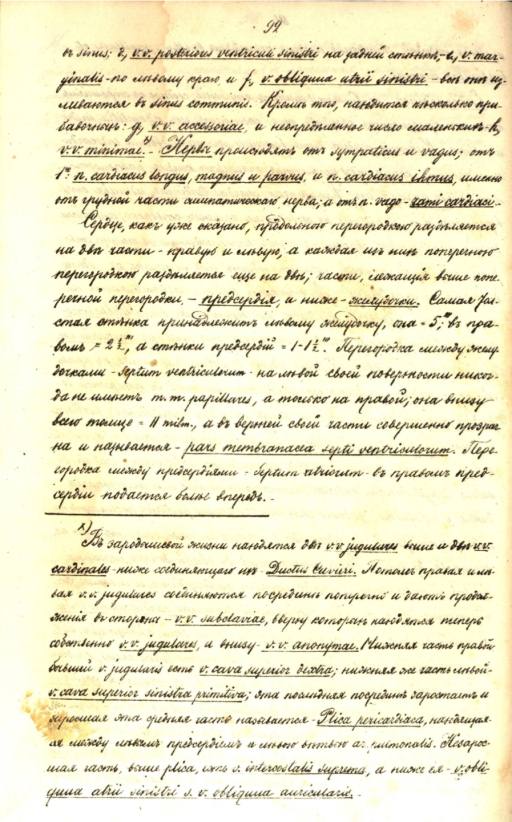 92
въ sinus; d, v.v. posteriores ventriculi sinistri на задней стѣнкѣ, – e, v. mar-
ginalis – по лѣвому краю и f, v. obliqua atrii sinistri – всѣ онѣ из-
ливаются въ sinus communis. Кромѣ того, находится нѣсколько при-
бавочныхъ: g, v.v. accessoriae, и неопредѣленное число маленькихъ – h,
v.v. minimae. х) – Нервы происходятъ отъ sympaticus и vagus; отъ
1го: n. cardiacus longus, magnus et parvus, и n. cardiacus imus, именно
отъ грудной части симпатическаго нерва; а отъ n. vago – rami cardiaci. –
Сердце, какъ уже сказано, продольною перегородкою раздѣляется
на двѣ части – правую и лѣвую, а каждая изъ нихъ поперечною
перегородкою раздѣляется еще на двѣ; части, лежащія выше попе-
речной перегородки, – предсердія, и ниже – желудочки. Самая тол-
стая стѣнка принадлежитъ лѣвому желудочку, она = 5‴, въ пра-
вомъ = 2½‴, а стѣнки предсердій = 1–1½‴. Перегородка между желу-
дочками – septum ventriculorum – на лѣвой своей поверхности никог-
да не имѣетъ m. m. papillares, а только на правой; она внизу
всего толще = 11 milm., а въ верхней своей части совершенно прозрач-
на и называется – pars membranacea septi ventriculorum. Пере-
городка между предсердіями – septum atriorum – въ правомъ пред-
сердіи подается болѣе впередъ. –
х) Въ зародышевой жизни находятся двѣ v.v. jugulares выше и двѣ v.v.
cardinales – ниже соединяющаго ихъ – Ductus Cuvieri. Потомъ правая и лѣ-
вая v.v. jugulares соединяются посрединѣ поперечно и даютъ продол-
женія въ стороны – v.v. subclaviae, вверху которыхъ находятся теперь
собственно v.v. jugulares, и внизу – v.v. anonymae. Нижняя часть правой
бывшей v. jugularis есть v. cava superior dextra; нижняя же часть лѣвой –
v. cava superior sinistra primitiva; эта послѣдняя посрединѣ заростаетъ и
заросшая эта средняя часть называется – Plica pericardiaca, находящая-
ся между лѣвымъ предсердіемъ и лѣвою вѣтвью ar. pulmonalis. Незарос-
шая часть, выше plica, есть v. intercostalis suprema, а ниже ея – v. obli-
qua atrii sinistri s. v. obliqua auricularis. –